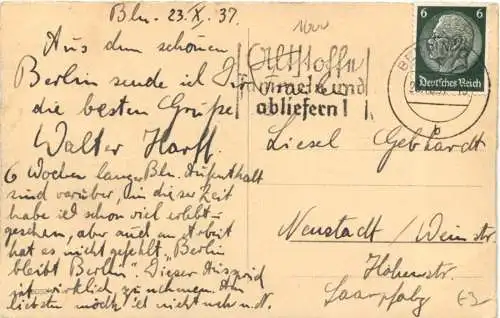 Bln. 23.X.37.
Aus dem schönen
Berlin sende ich Dir
die besten Grüße
Walter Harff.
6 Wochen langer Bln. Aufenthalt
sind vorüber, in dieser Zeit
habe ich schon viel erlebt
gesehen, aber auch an Arbeit
hat es nicht gefehlt. „Berlin
bleibt Berlin“. Dieser Ausspruch
ist wirklich zu nehmen. Am
liebsten möcht' ich nicht mehr n. N.
Altstoffe
sammeln und
abliefern!
6 6
Deutsches Reich
Liesel Gebhardt
Neustadt / Weinstr.
Hohenstr.
Saarpfalz